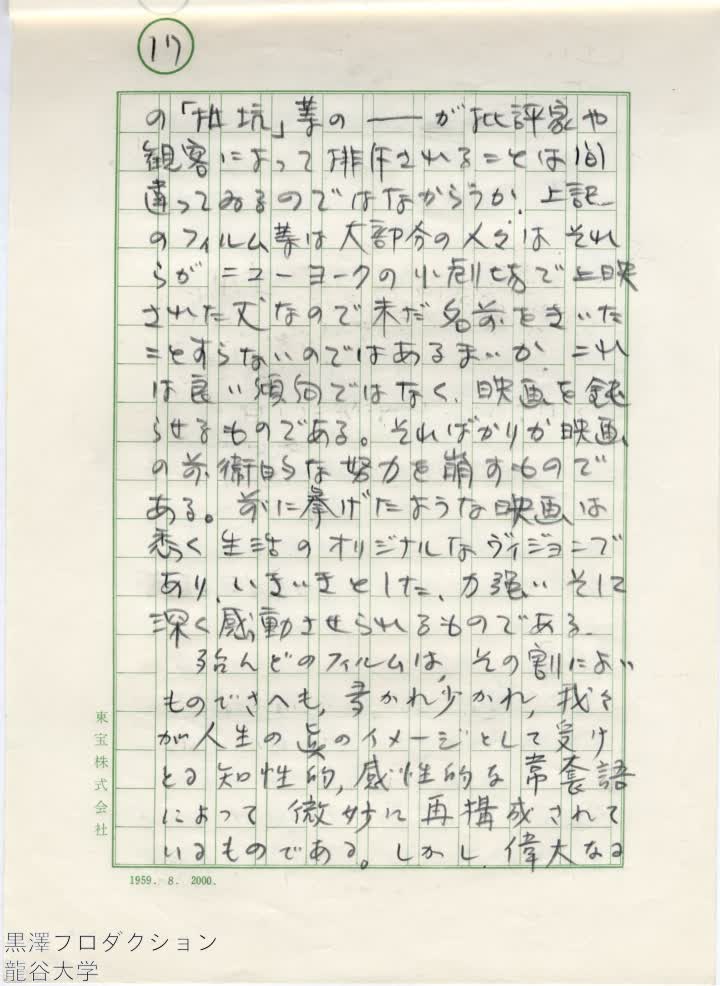 17
の「
観客によって排斥されることは間
違ってゐるのではなからうか。上記
のフィルム等は大部分の人々は それ
らが ニューヨークの小劇場で上映
された丈なので未だ名前をきいた
ことすらないのではあるまいか これ
は良い傾向ではなく、映画を鈍
らせるものである。そればかりか映画
の前衛的な努力を崩すもので
ある。前に挙げたような映画は
悉く生活のオリジナルなヴィジョンで
あり、いきいきとした、力強い そして
深く感動させられるものである。
殆んどのフィルムは、その割によい
ものでさへも、多かれ少かれ、我々
が人生の眞のイメージとして受け
とる知性的、感性的な常套語
によって 微妙に再構成されて
いるものである。しかし、偉大なる
東宝株式会社
1959. 8. 2000.
黒澤プロダクション
龍谷大学